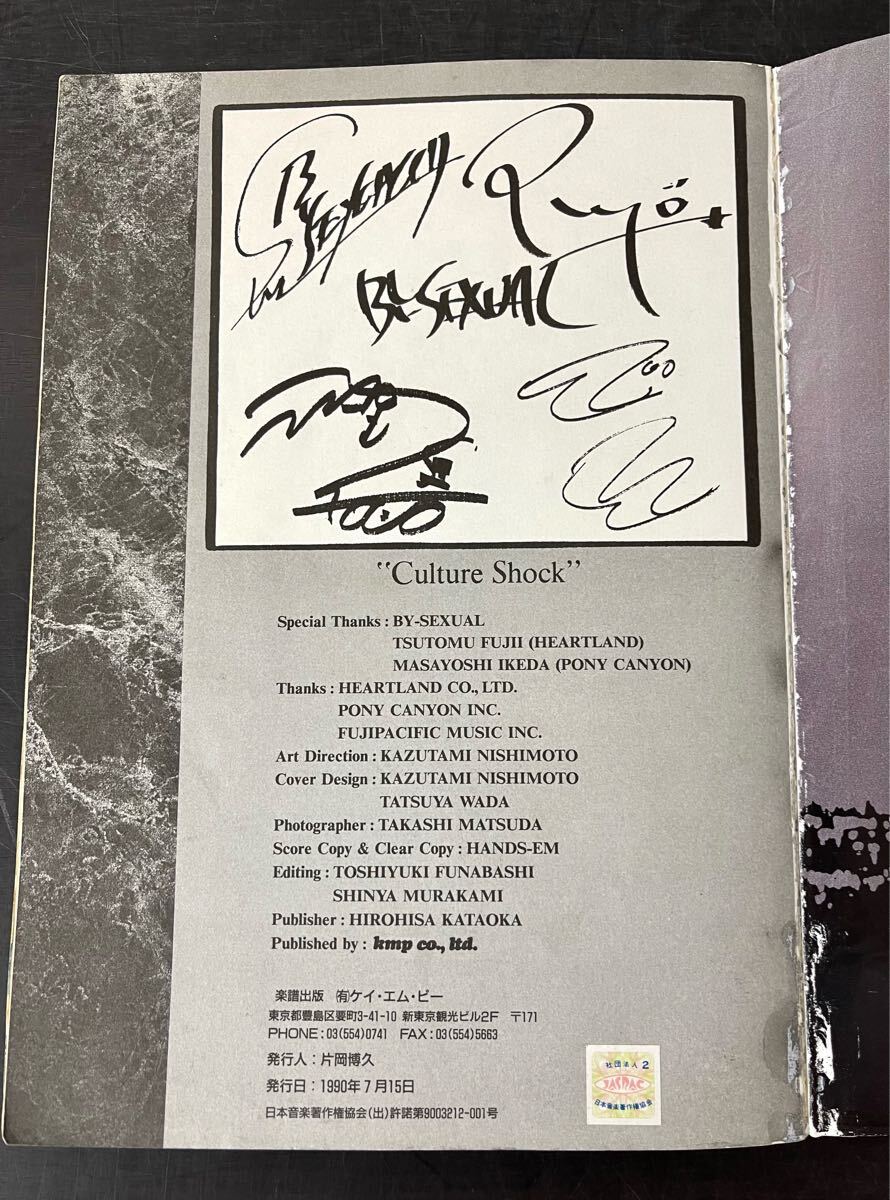 BY-SEXUAL Ryö
BY-SEXUAL
"Culture Shock"
Special Thanks : BY-SEXUAL
TSUTOMU FUJII (HEARTLAND)
MASAYOSHI IKEDA (PONY CANYON)
Thanks : HEARTLAND CO., LTD.
PONY CANYON INC.
FUJIPACIFIC MUSIC INC.
Art Direction : KAZUTAMI NISHIMOTO
Cover Design : KAZUTAMI NISHIMOTO
TATSUYA WADA
Photographer : TAKASHI MATSUDA
Score Copy & Clear Copy : HANDS-EM
Editing : TOSHIYUKI FUNABASHI
SHINYA MURAKAMI
Publisher : HIROHISA KATAOKA
Published by : kmp co., ltd.
楽譜出版 ㈲ケイ・エム・ピー
東京都豊島区要町3-41-10 新東京観光ビル2F 〒171
PHONE : 03(554)0741 FAX : 03(554)5663
発行人：片岡博久
発行日：1990年7月15日
日本音楽著作権協会(出)許諾第9003212-001号
社団法人 2
JASRAC
日本音楽著作権協会